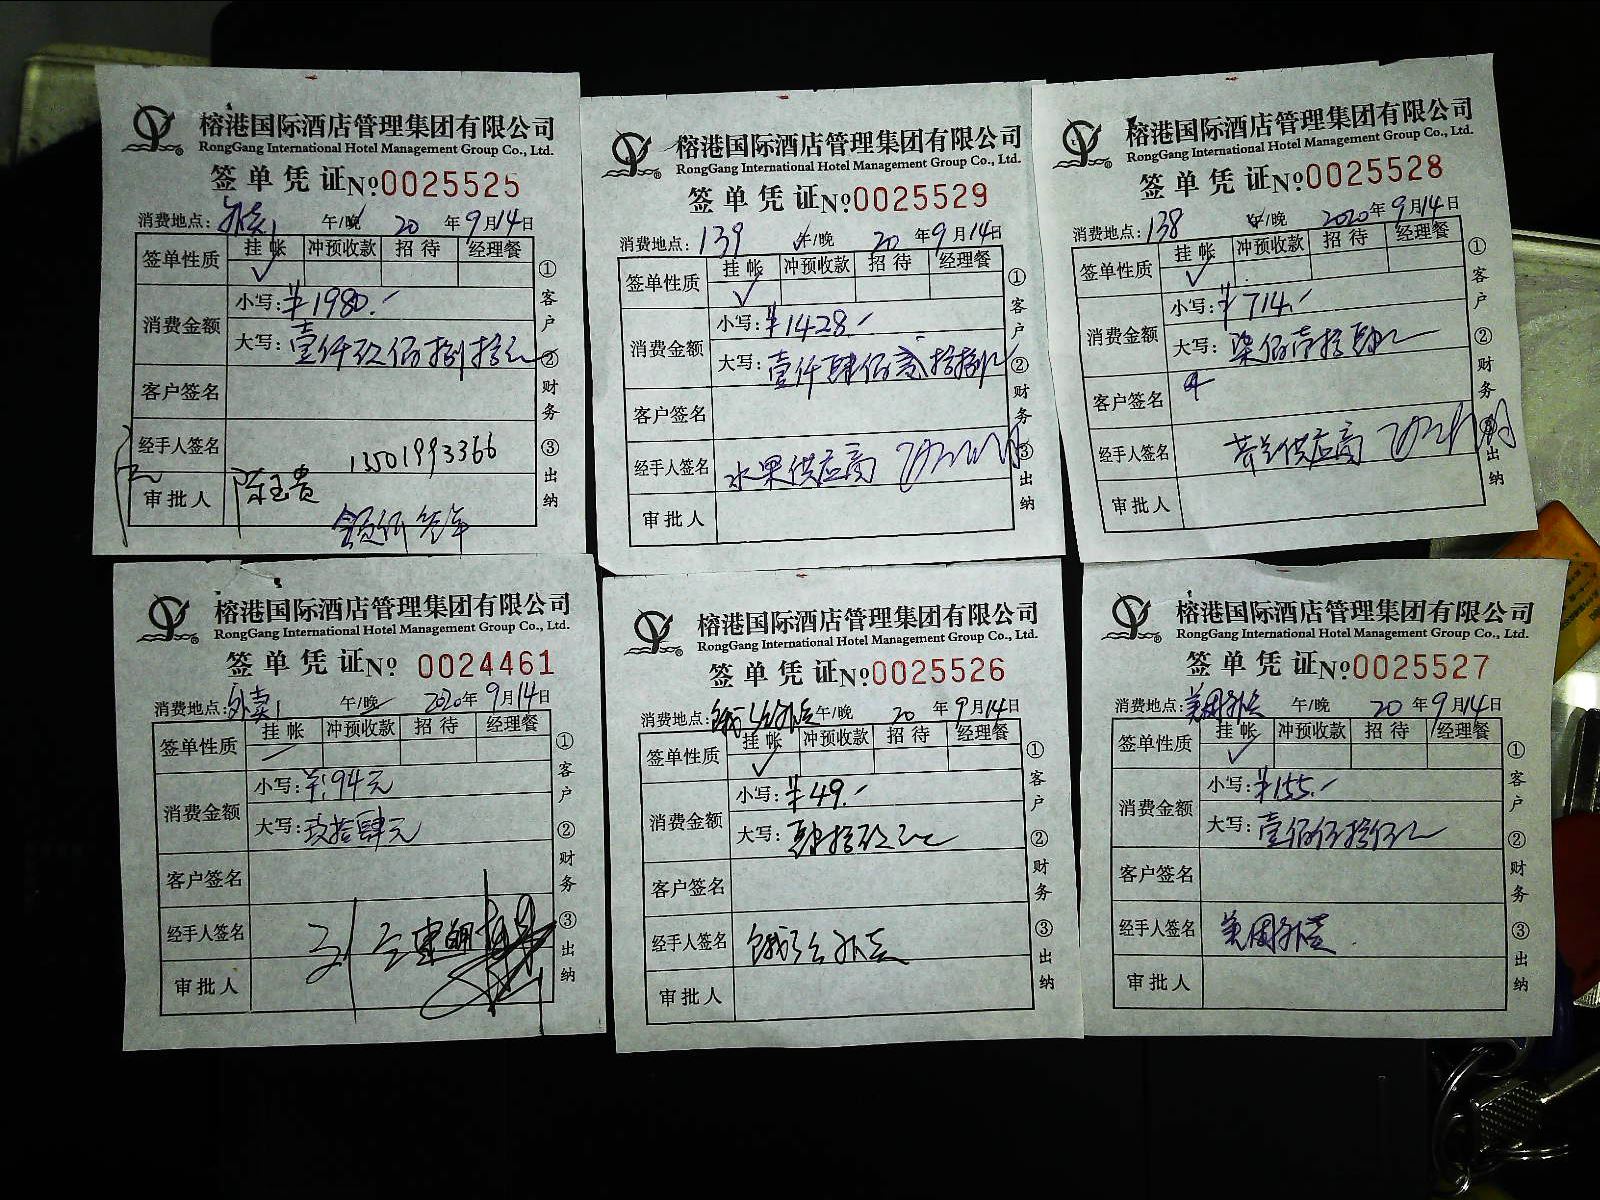 榕港国际酒店管理集团有限公司
RongGang International Hotel Management Group Co., Ltd.
签单凭证 №0025525
消费地点: 外卖 午/晚 20 年9月14日
签单性质 挂帐 冲预收款 招待 经理餐
✓
消费金额 小写:¥1980.-
大写:壹仟玖佰捌拾元
客户签名
经手人签名 13501993366
审批人 陈玉贵
①客户 ②财务 ③出纳
榕港国际酒店管理集团有限公司
RongGang International Hotel Management Group Co., Ltd.
签单凭证 №0025529
消费地点: 139 午/晚 20 年9月14日
签单性质 挂帐 冲预收款 招待 经理餐
✓
消费金额 小写:¥1428.-
大写:壹仟肆佰贰拾捌元
客户签名
经手人签名 水果供应商
审批人
①客户 ②财务 ③出纳
榕港国际酒店管理集团有限公司
RongGang International Hotel Management Group Co., Ltd.
签单凭证 №0025528
消费地点: 138 午/晚 2020年9月14日
签单性质 挂帐 冲预收款 招待 经理餐
✓
消费金额 小写:¥714.-
大写:柒佰壹拾肆元
客户签名
经手人签名 供应商
审批人
①客户 ②财务 ③出纳
榕港国际酒店管理集团有限公司
RongGang International Hotel Management Group Co., Ltd.
签单凭证 № 0024461
消费地点: 外卖 午/晚 2020年9月14日
签单性质 挂帐 冲预收款 招待 经理餐
消费金额 小写:¥:94元
大写:玖拾肆元
客户签名
经手人签名
审批人
①客户 ②财务 ③出纳
榕港国际酒店管理集团有限公司
RongGang International Hotel Management Group Co., Ltd.
签单凭证 №0025526
消费地点: 饿了么外卖 午/晚 20 年9月14日
签单性质 挂帐 冲预收款 招待 经理餐
✓
消费金额 小写:¥49.-
大写:肆拾玖元
客户签名
经手人签名 饿了么外卖
审批人
①客户 ②财务 ③出纳
榕港国际酒店管理集团有限公司
RongGang International Hotel Management Group Co., Ltd.
签单凭证 №0025527
消费地点: 美团外卖 午/晚 20 年9月14日
签单性质 挂帐 冲预收款 招待 经理餐
✓
消费金额 小写:¥155.-
大写:壹佰伍拾伍元
客户签名
经手人签名 美团外卖
审批人
①客户 ②财务 ③出纳